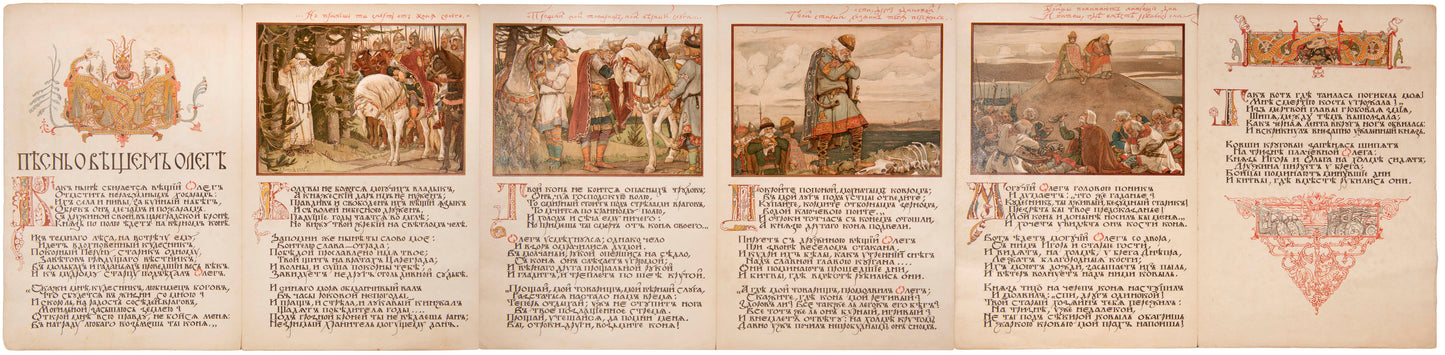 ПѢСНЬ О ВѢЩЕМЪ ОЛЕГѢ
Какъ нынѣ сбирается вѣщій Олегъ
Отмстить неразумнымъ хозарамъ:
Ихъ села и нивы, за буйный набѣгъ,
Обрекъ онъ мечамъ и пожарамъ.
Съ дружиной своей, въ цареградской бронѣ,
Князь по полю ѣдетъ на вѣрномъ конѣ.
Изъ темнаго лѣса, на встрѣчу ему,
Идетъ вдохновенный кудесникъ,
Покорный Перуну старикъ одному,
Завѣтовъ грядущаго вѣстникъ,
Въ мольбахъ и гаданьяхъ проведшій весь вѣкъ.
И къ мудрому старцу подъѣхалъ Олегъ.
„Скажи мнѣ, кудесникъ, любимецъ боговъ,
Что сбудется въ жизни со мною?
И скоро ль, на радость сосѣдей-враговъ,
Могильной засыплюсь землею?
Открой мнѣ всю правду, не бойся меня:
Въ награду любаго возьмешь ты коня...
Но примешь ты смерть отъ коня своего.
Волхвы не боятся могучихъ владыкъ,
А княжескій даръ имъ не нуженъ;
Правдивъ и свободенъ ихъ вѣщій языкъ
И съ волей небесною друженъ.
Грядущіе годы таятся во мглѣ;
Но вижу твой жребій на свѣтломъ челѣ.
Запомни же нынѣ ты слово мое:
Воителю слава—отрада;
Побѣдой прославлено имя твое;
Твой щитъ на вратахъ Цареграда;
И волны и суша покорны тебѣ;
Завидуетъ недругъ столь дивной судьбѣ.
И синяго моря обманчивый валъ
Въ часы роковой непогоды,
И пращъ, и стрѣла, и лукавый кинжалъ
Щадятъ побѣдителя годы....
Подъ грозной броней ты не вѣдаешь ранъ;
Незримый хранитель могущему данъ.
Прощай, мой товарищъ, мой вѣрный слуга,
Твой конь не боится опасныхъ трудовъ:
Онъ, чуя господскую волю,
То смирный стоитъ подъ стрѣлами враговъ,
То мчится по бранному полю,
И холодъ и сѣча ему ничего:
Но примешь ты смерть отъ коня своего..."
Олегъ усмѣхнулся; однако чело
И взоръ омрачилися думой.
Въ молчаньи, рукой опершись на сѣдло,
Съ коня онъ слѣзаетъ угрюмой;
И вѣрнаго друга прощальной рукой
И гладитъ, и треплетъ по шеѣ крутой.
„Прощай, мой товарищъ, мой вѣрный слуга,
Разстаться настало намъ время:
Теперь отдыхай; ужъ не ступитъ нога
Въ твое позлащенное стремя.
Прощай, утѣшайся, да помни меня.
Вы, отроки-други, возьмите коня!
Спи, другъ одинокой!
Твой старый хозяинъ тебя пережилъ.
Покройте попоной, мохнатымъ ковромъ;
Въ мой лугъ подъ устцы отведите:
Купайте, кормите отборнымъ зерномъ,
Водой ключевою поите..."
И отроки тотчасъ съ конемъ отошли,
А князю другаго коня подвели.
Пируетъ съ дружиною вѣщій Олегъ
При звонѣ веселомъ стакана.
И кудри ихъ бѣлы, какъ утренній снѣгъ
Надъ славной главою кургана....
Они поминаютъ прошедшіе дни
И битвы, гдѣ вмѣстѣ рубились они.
„А гдѣ мой товарищъ, промолвилъ Олегъ:
Скажите, гдѣ конь мой ретивый?
Здоровъ ли? Все такъ же ль легокъ его бѣгъ?
Все тотъ же ль онъ бурный, игривый?"
И внемлетъ отвѣтъ: на холмѣ крутомъ
Давно ужъ почилъ непробуднымъ онъ сномъ.
Бойцы поминаютъ минувшіе дни
И битвы, гдѣ вмѣстѣ рубились они.
Могучій Олегъ головою поникъ
И думаетъ: „что же гаданье?
Кудесникъ, ты лживый, безумный старикъ!
Презрѣть бы твое предсказанье!
Мой конь и донынѣ носилъ бы меня..."
И хочетъ увидѣть онъ кости коня.
Вотъ ѣдетъ могучій Олегъ со двора,
Съ нимъ Игорь и старые гости,
И видятъ, на холмѣ, у брега Днѣпра,
Лежатъ благородныя кости;
Ихъ моютъ дожди, засыпаетъ ихъ пыль,
И вѣтеръ волнуетъ надъ ними ковыль.
Князь тихо на черепъ коня наступилъ
И молвилъ: „спи, другъ одинокой!
Твой старый хозяинъ тебя пережилъ:
На тризнѣ, уже недалекой,
Не ты подъ сѣкирой ковыль обагришь
И жаркою кровью мой прахъ напоишь!
Такъ вотъ гдѣ таилась погибель моя!
Мнѣ смертію кость угрожала!"
Изъ мертвой главы гробовая змія,
Шипя, между тѣмъ выползала;
Какъ черная лента вкругъ ногъ обвилась:
И вскрикнулъ внезапно ужаленный князь.
Ковши круговые запѣнясь шипятъ
На тризнѣ плачевной Олега:
Князь Игорь и Ольга на холмѣ сидятъ;
Дружина пируетъ у брега;
Бойцы поминаютъ минувшіе дни
И битвы, гдѣ вмѣстѣ рубились они.